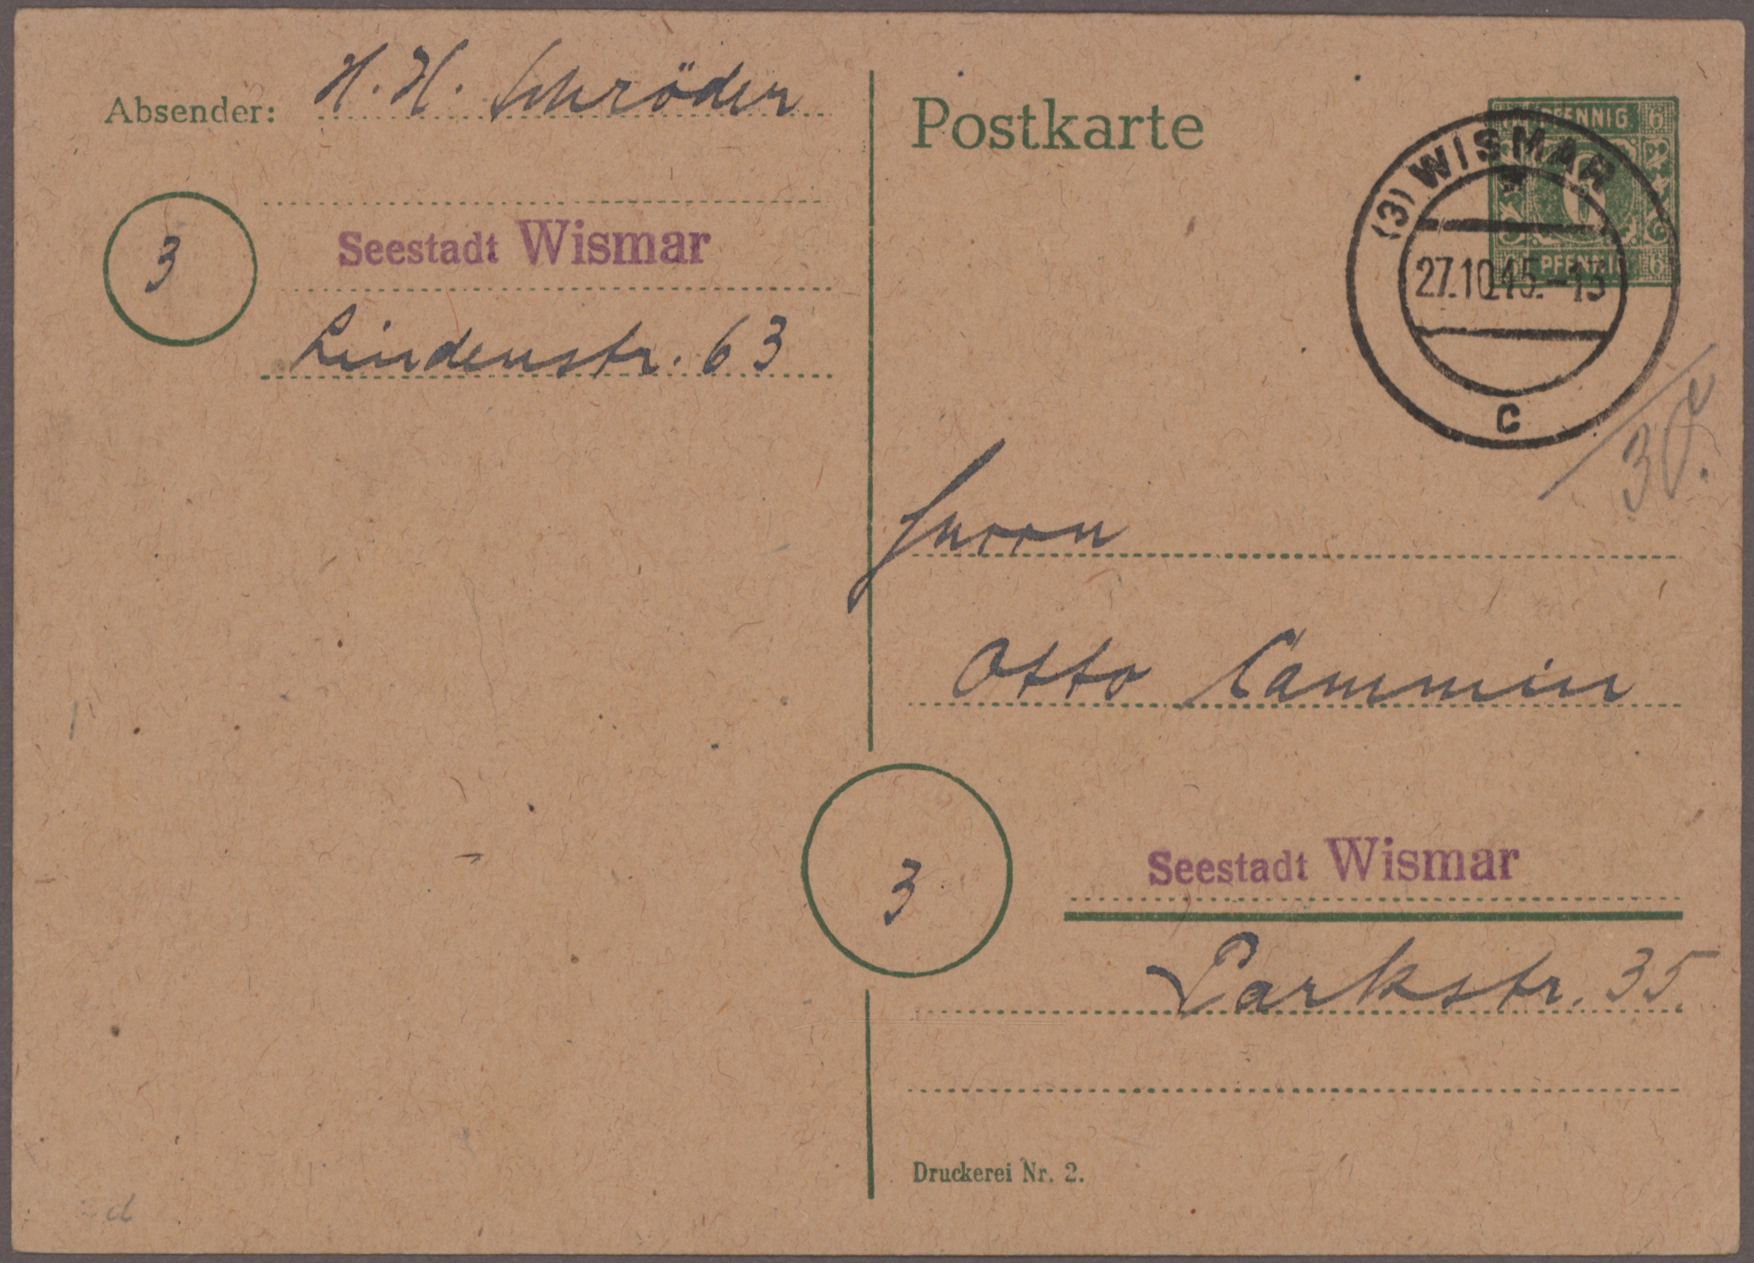 Absender: H. H. Schröder
3
Seestadt Wismar
Lindenstr. 63
Postkarte
PFENNIG 6
6
PFENNIG 6
(3) WISMAR
27.10.45.-13
C
Herrn
Otto Cammin
3
Seestadt Wismar
Parkstr. 35.
Druckerei Nr. 2.